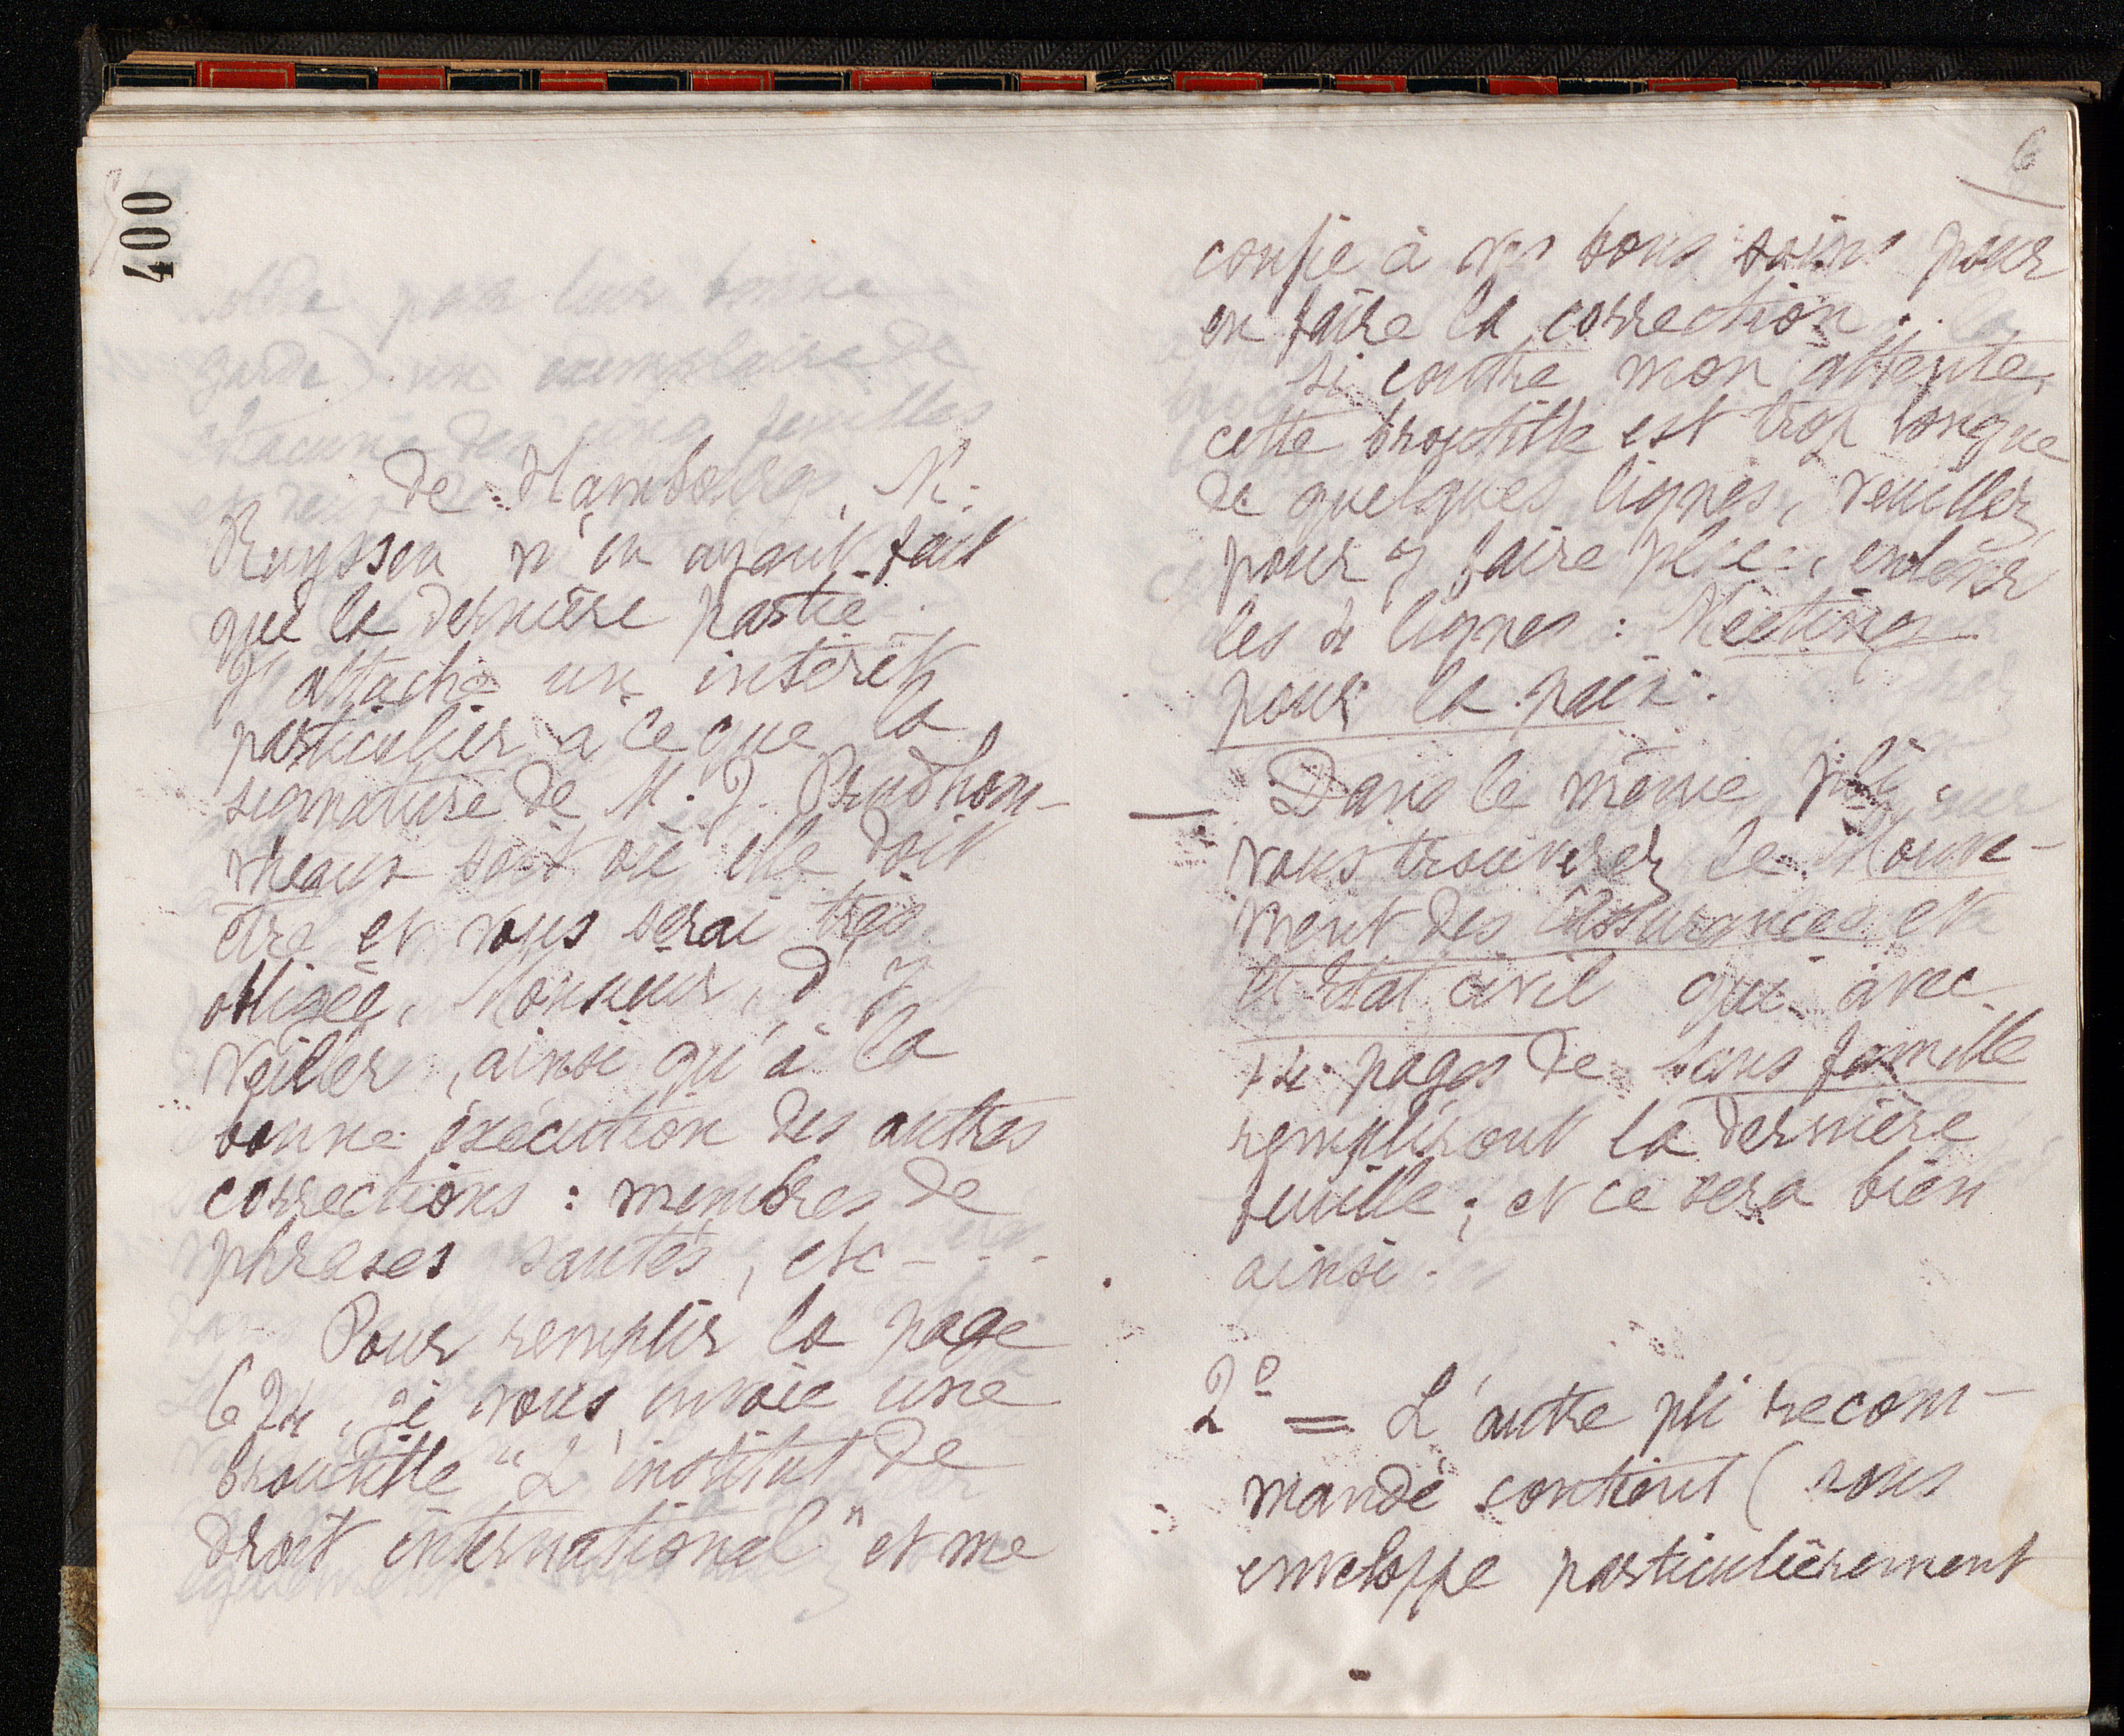 400
de Hambourg, M.
Ruyssen n'en ayant fait
que la dernière partie.
J'attache un intérêt
particulier à ce que la
signature de M. J. Prudhom-
meaux soit où elle doit
être et vous serai très
obligée, Monsieur, d'y
veiller, ainsi qu'à la
bonne exécution des autres
corrections : membres de
phrases sautés, etc - - -
Pour remplir la page
674, je vous envoie une
broutille "L'institut de
droit international" et me
6
confie à vos bons soins pour
en faire la correction.
Si contre mon attente,
cette broutille est trop longue
de quelques lignes, veuillez,
pour y faire place, enlever
les 4 lignes : Meeting
pour la paix.
— Dans le même pli,
vous trouverez le Mouve-
ment des Assurances et
l'Etat civil qui avec
14 pages de Sans famille
rempliront la dernière
feuille ; et ce sera bien
ainsi.
2° = L'autre pli recom-
mandé contient (sous
enveloppe particulièrement